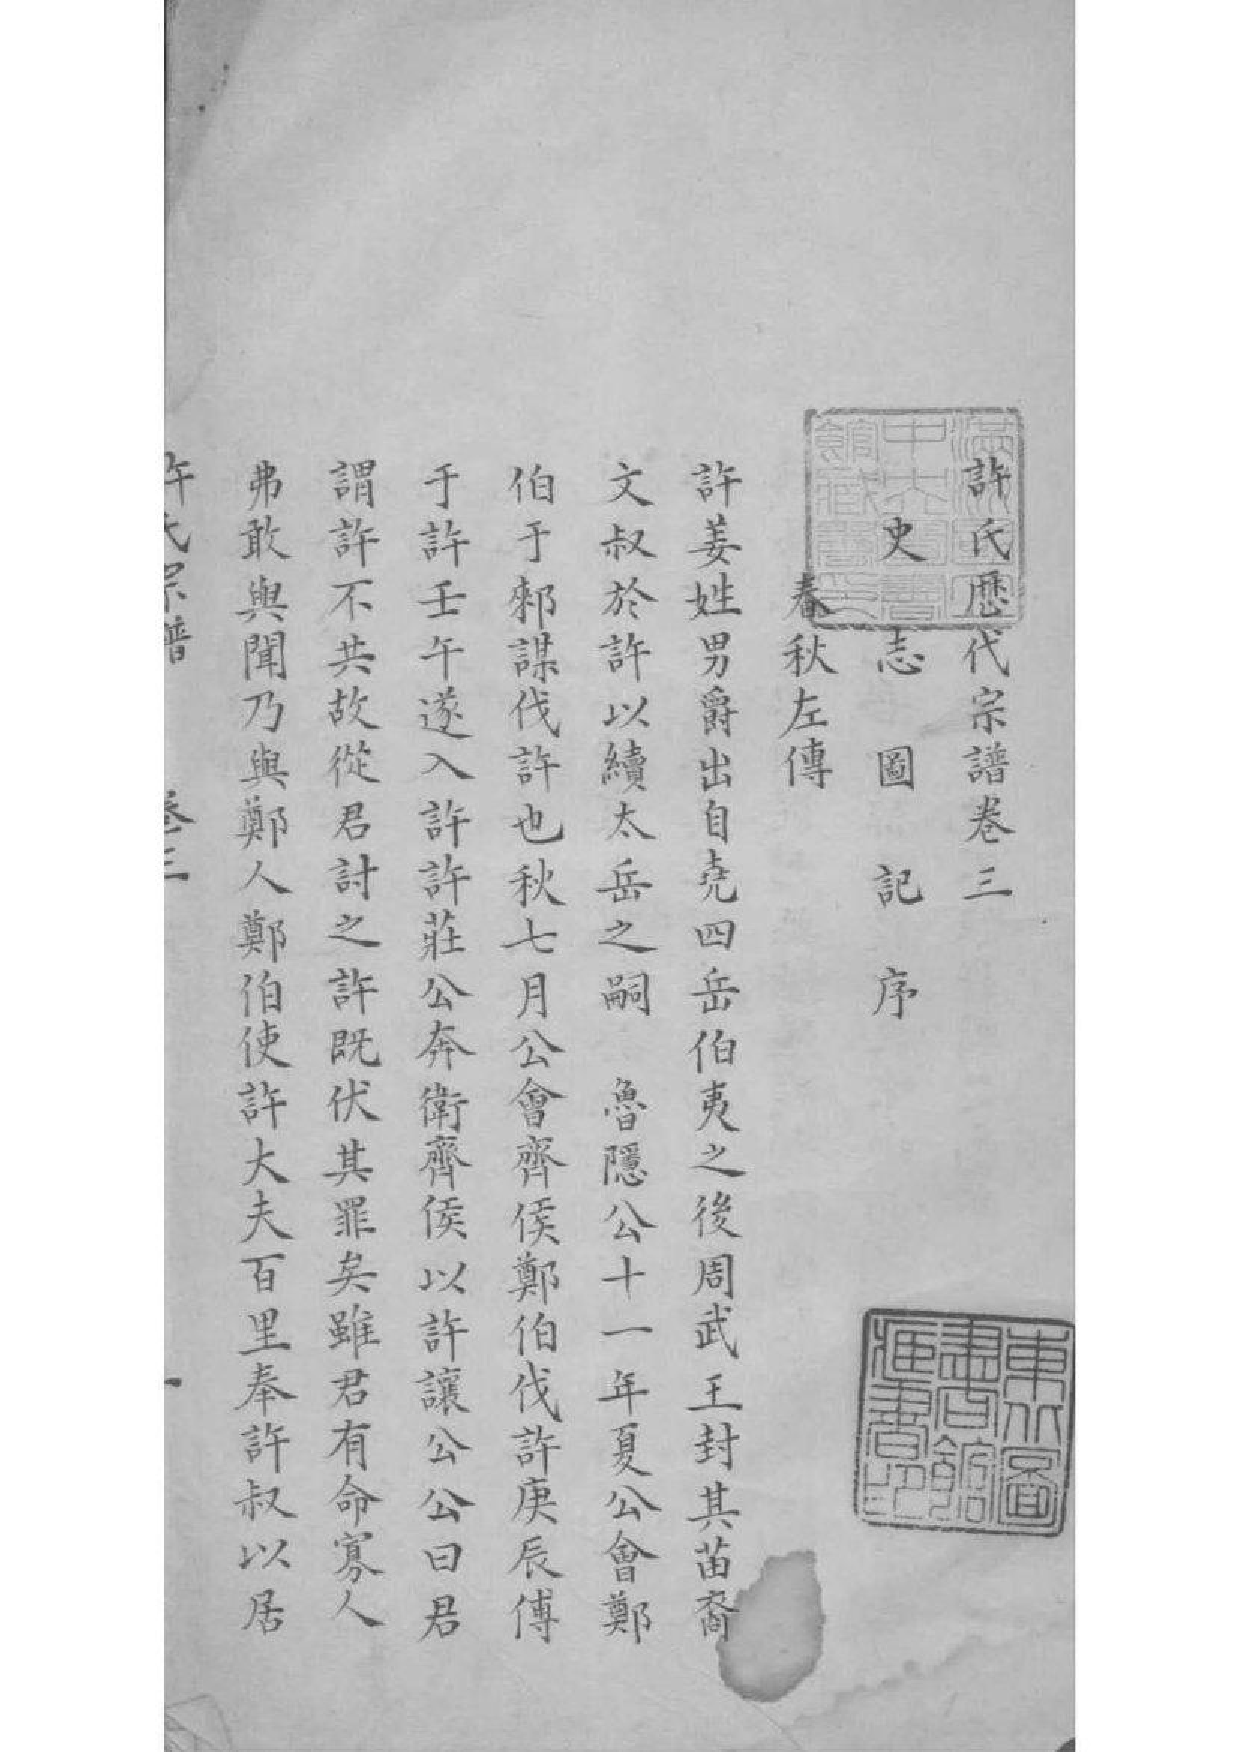 許氏歷代宗譜卷三
史志圖記序
春秋左傳
許姜姓男爵出自堯四岳伯夷之後周武王封其苗裔
文叔於許以續太岳之嗣 魯隱公十一年夏公會鄭
伯于郲謀伐許也秋七月公會齊侯鄭伯伐許庚辰傅
于許壬午遂入許許莊公奔衛齊侯以許讓公公曰君
謂許不共故從君討之許既伏其罪矣雖君有命寡人
弗敢與聞乃與鄭人鄭伯使許大夫百里奉許叔以居
許氏宗譜 卷三 一
東北圖書館藏書印